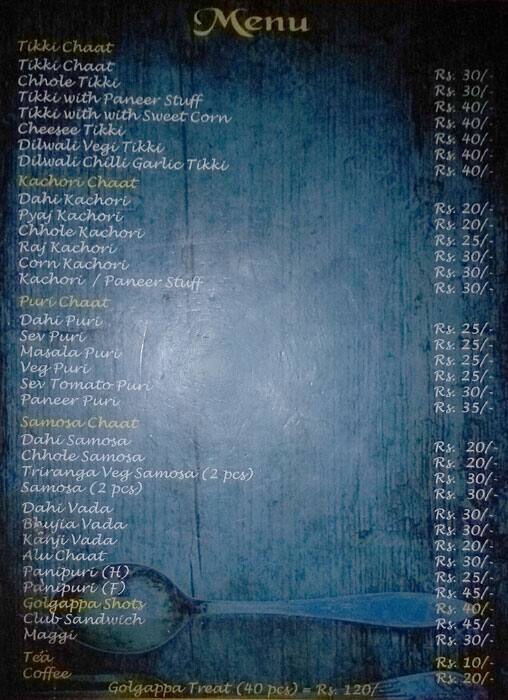 Menu
Tikki Chaat
Tikki Chaat Rs. 30/-
Chhole Tikki Rs. 30/-
Tikki with Paneer Stuff Rs. 40/-
Tikki with with Sweet Corn Rs. 40/-
Cheesee Tikki Rs. 40/-
Dilwali Vegi Tikki Rs. 40/-
Dilwali Chilli Garlic Tikki Rs. 40/-
Kachori Chaat
Dahi Kachori Rs. 20/-
Pyaj Kachori Rs. 20/-
Chhole Kachori Rs. 25/-
Raj Kachori Rs. 30/-
Corn Kachori Rs. 30/-
Kachori / Paneer Stuff Rs. 30/-
Puri Chaat
Dahi Puri Rs. 25/-
Sev Puri Rs. 25/-
Masala Puri Rs. 25/-
Veg Puri Rs. 25/-
Sev Tomato Puri Rs. 30/-
Paneer Puri Rs. 35/-
Samosa Chaat
Dahi Samosa Rs. 20/-
Chhole Samosa Rs. 20/-
Triranga Veg Samosa (2 pcs) Rs. 30/-
Samosa (2 pcs) Rs. 30/-
Dahi Vada Rs. 30/-
Bhujia Vada Rs. 30/-
Kanji Vada Rs. 20/-
Alu Chaat Rs. 30/-
Panipuri (H) Rs. 25/-
Panipuri (F) Rs. 45/-
Golgappa Shots Rs. 40/-
Club Sandwich Rs. 45/-
Maggi Rs. 30/-
Tea Rs. 10/-
Coffee Rs. 20/-
Golgappa Treat (40 pcs) = Rs. 120/-